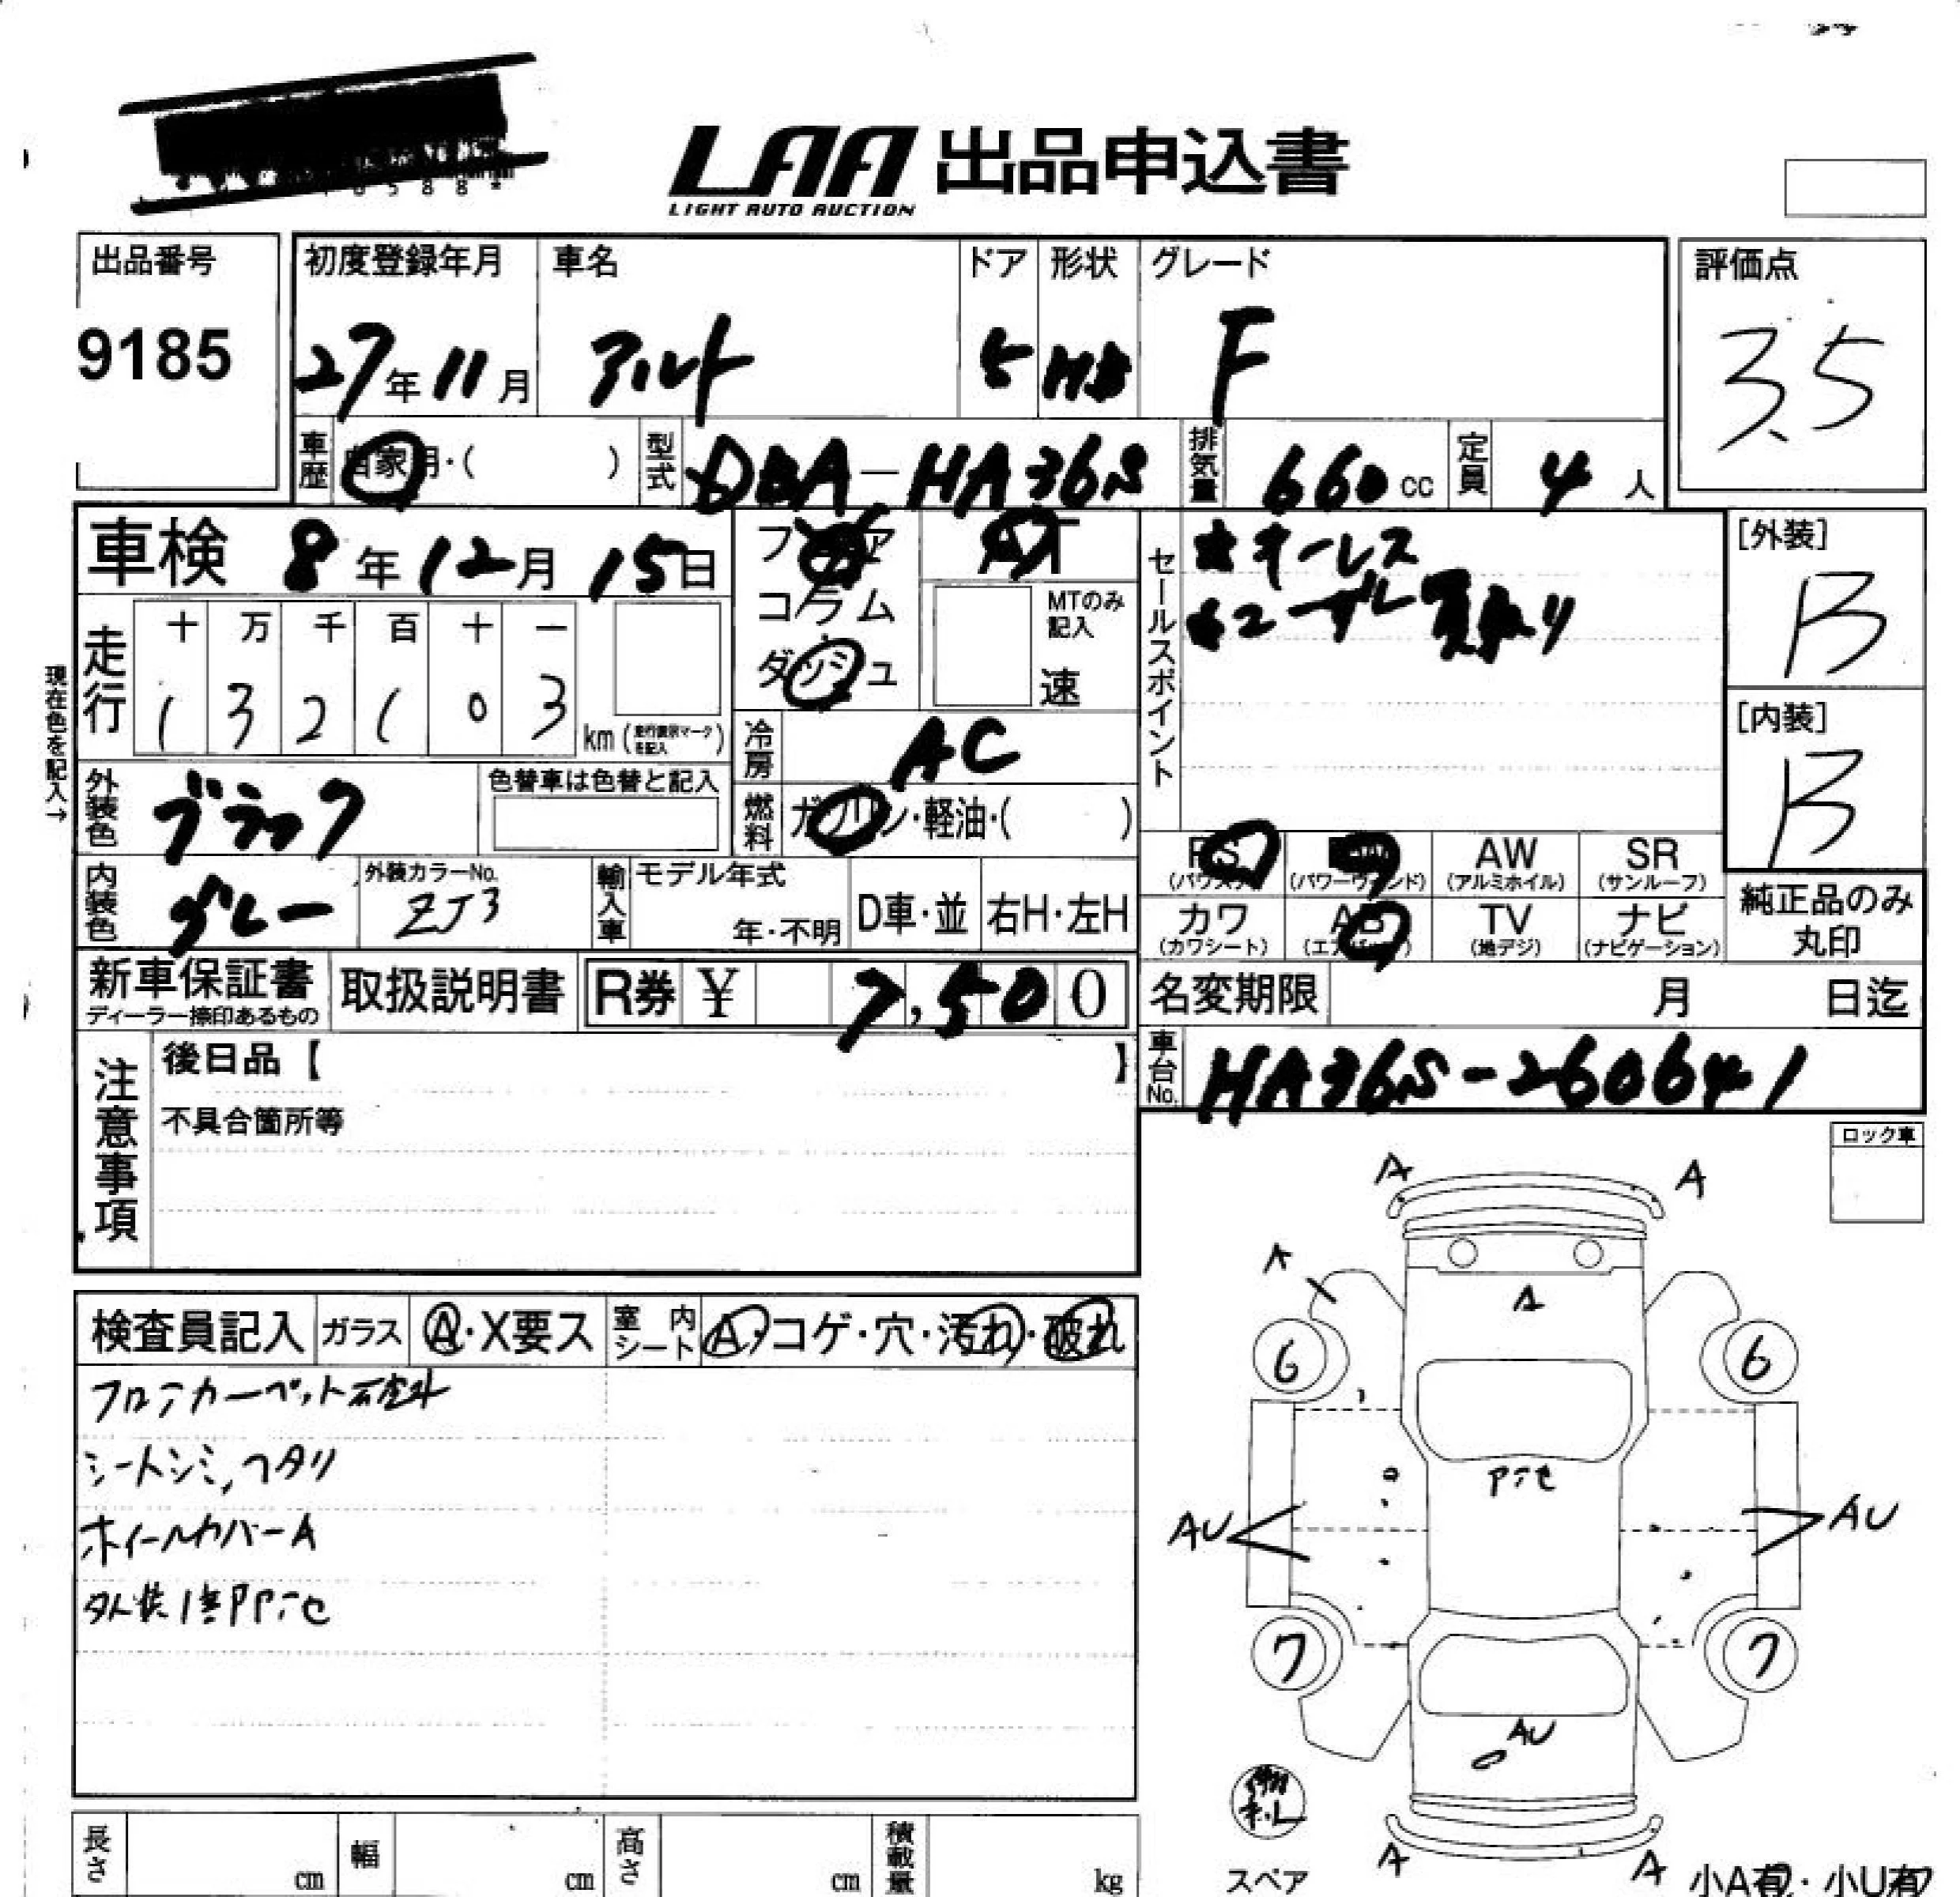 LAA 出品申込書
LIGHT AUTO AUCTION
出品番号
9185
初度登録年月
27年11月
車名
アルト
ドア
5
形状
HB
グレード
F
評価点
3.5
車歴 自家用・( )
型式 DBA-HA36S
排気量 660cc
定員 4人
車検 8年12月15日
フロア
コラム
ダッシュ
AT
MTのみ記入
速
セールスポイント
★キーレス
[外装]
B
[内装]
B
現在色を記入→
走行
十 万 千 百 十 一
1 3 2 1 0 3 km (走行表示マークを記入)
冷房 AC
外装色 ブラック
色替車は色替と記入
燃料 ガソリン・軽油・( )
内装色 グレー
外装カラーNo.
ZJ3
輸入車 モデル年式
年・不明
D車・並
右H・左H
PS (パワステ)
PW (パワーウィンド)
AW (アルミホイル)
SR (サンルーフ)
カワ (カワシート)
AB (エアバッグ)
TV (地デジ)
ナビ (ナビゲーション)
純正品のみ丸印
新車保証書
ディーラー捺印あるもの
取扱説明書
R券 ¥ 7,500
名変期限 月 日迄
車台No. HA36S-260641
注意事項
後日品【 】
不具合箇所等
ロック車
検査員記入
ガラス A・X要ス
室内シート A・コゲ・穴・汚れ・破れ
フロアカーペット
シートシミ,ヘタリ
ホイールカバーA
A A
A
A
6 6
AU AU
7 7
AU
A A
スペア
小A有・小U有
長さ cm
幅 cm
高さ cm
積載量 kg